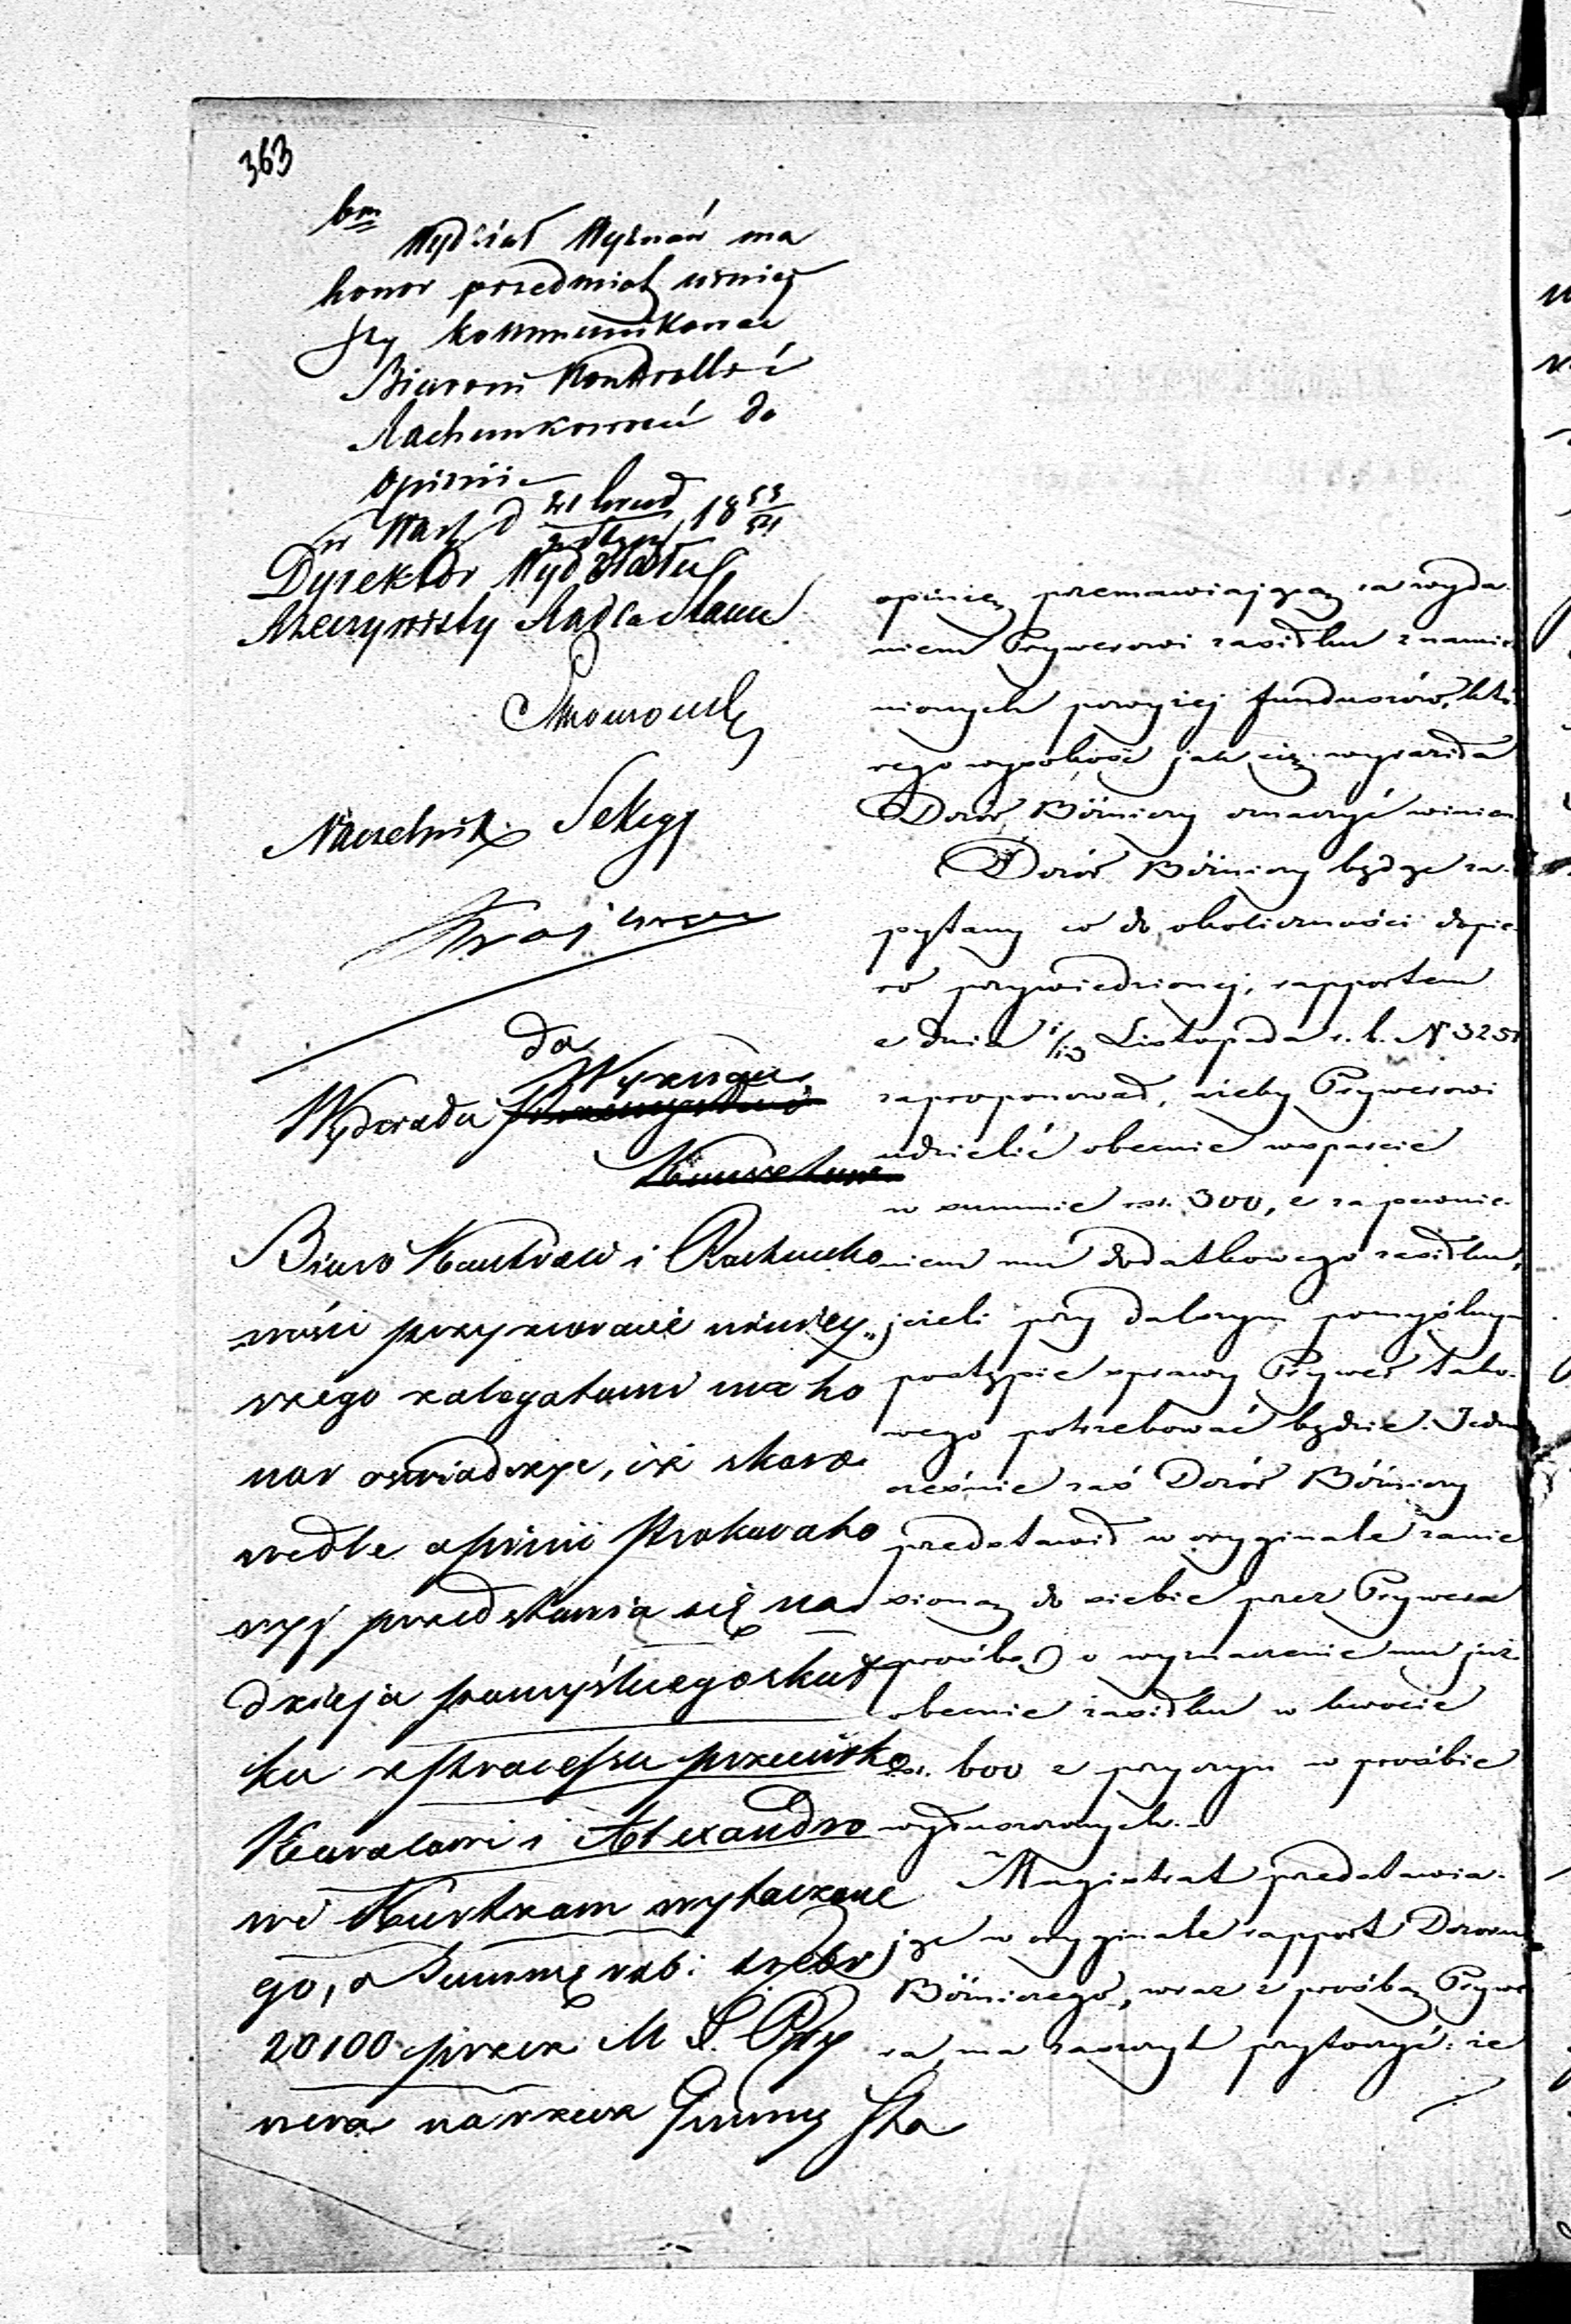 363
bm
Wydział Wyznań ma
honor przedmiot niniej
szy kommunikować
Biurowi Kontrolli i
Rachunkowości do
opinii
w Warsz d 21 Grud 18 53/54
Dyrektor Wydziału
Rzeczywisty Radca Stanu
Naczelnik Sekcyi
do
Wydziału Wyznań
Biuro Kontroli i Rachunko
wości przy zwrocie niniey„
szego z alegatami ma ho
nor oświadczyć, iż skoro
wedle opinii Prokurato
ryi przedstawia się na
dzieja pomyślnego skut
ku z processu przeciwko
Karolowi i Alexandro
wi Kurtzom wytoczone
go, o Summę rub: srebr
20100 przez M S. Pry
wera na rzecz Gminy Sta
opinię przemawiającą za wyda-
niem Prywerowi zasiłku z namie-
nionych powyżej funduszów, któ-
rego wysokość jak się wyraziła
Dozór Bóżniczy oznaczyć winien
Dozór Bóżniczy będąc za-
pytany co do okoliczności dopie-
ro przywiedzionej, rapportem
z dnia 1/13 Listopada r. b. N 325
zaproponował, ażeby Prywerowi
udzielić obecnie wsparcie
w summie rsr. 300, z zapewnie-
niem mu dodatkowego zasiłku,
jeżeli przy dalszym pomyślnym
postępie sprawy Prywer tako-
wego potrzebować będzie. Jedno
cześnie zaś Dozór Bóżniczy
przedstawił w oryginale zanie
sioną do siebie przez Prywera
prośbę o wyznaczenie mu już
obecnie zasiłku w kwocie
rsr. 600 z przyczyn w prośbie
wyłuszczonych.-
Magistrat przedstawia-
jąc w oryginale rapport Dozoru
Bóżniczego, wraz z prośbą Prywe
ra, ma zaszczyt przytoczyć: że